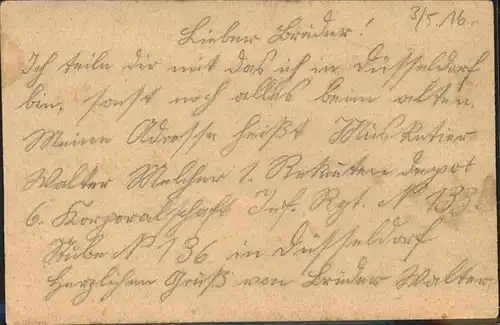 3/5.16.
Lieber Bruder!
Ich teile dir mit das ich in Düsseldorf
bin, sonst noch alles beim alten.
Meine Adresse heißt Musketier
Walter Melcher 1. Rekruten depot
6. Korporalschaft Inf. Rgt. № 133
Stube № 136 in Düsseldorf
Herzlichen Gruß von Bruder Walter